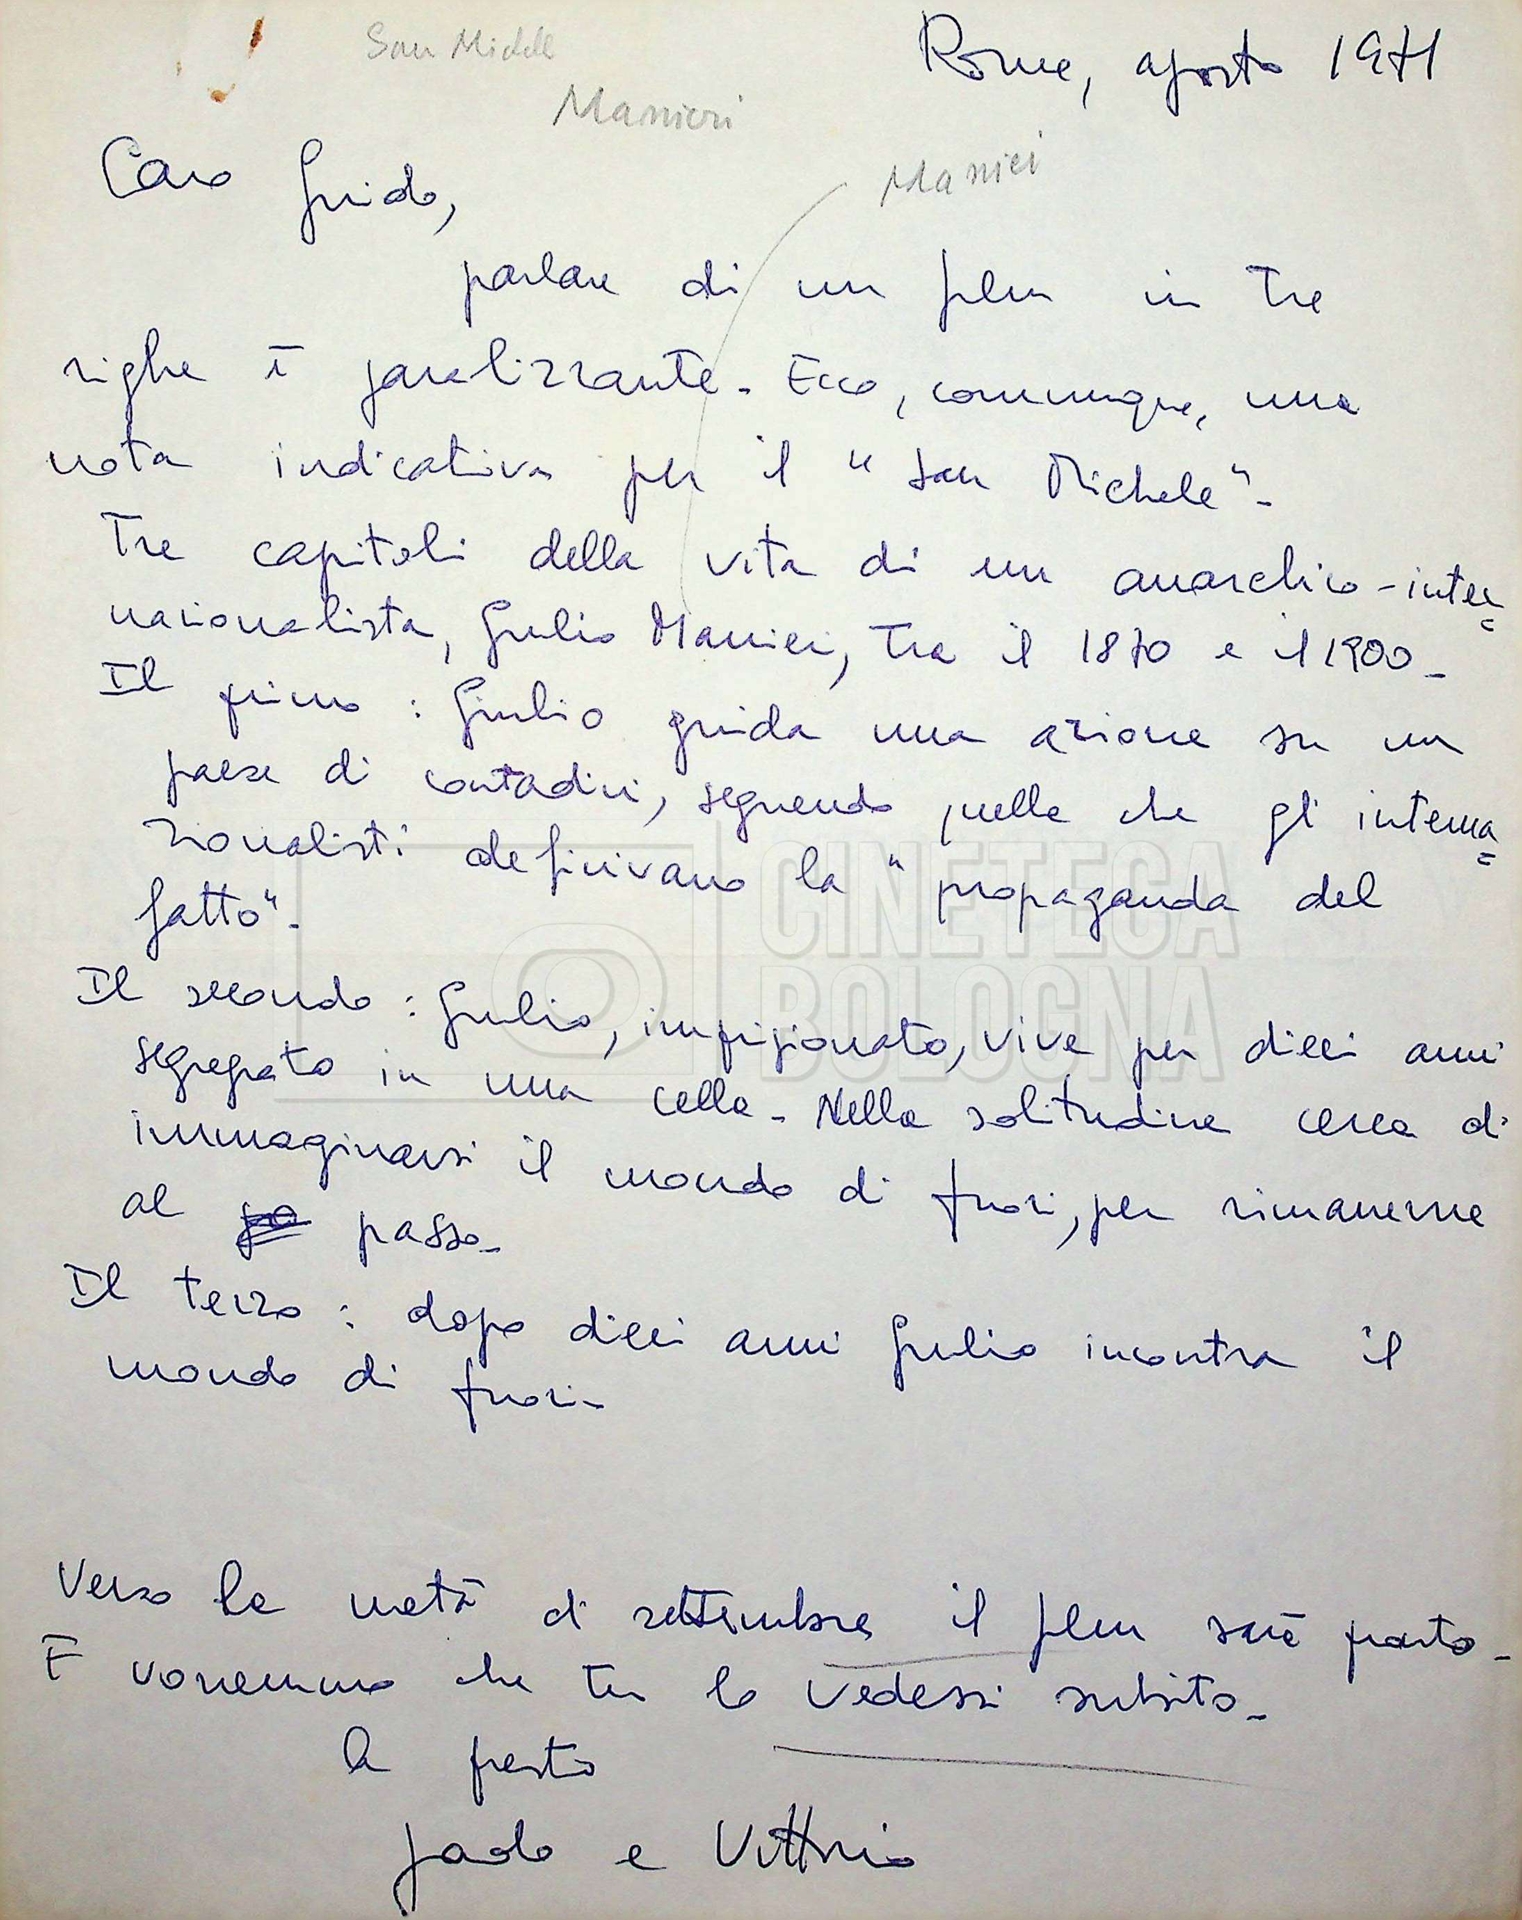 San Michele
Roma, agosto 1971
Manieri
Manieri
Caro Guido,
parlare di un film in tre
righe è paralizzante. Ecco, comunque, una
nota indicativa per il "San Michele".
Tre capitoli della vita di un anarchico-inter=
nazionalista, Giulio Manieri, tra il 1870 e il 1900.
Il primo: Giulio guida una azione su un
paese di contadini, seguendo quella che gli interna=
zionalisti definivano la "propaganda del
fatto".
CINETECA
BOLOGNA
Il secondo: Giulio, imprigionato, vive per dieci anni
segregato in una cella. Nella solitudine cerca di
immaginarsi il mondo di fuori, per rimanerne
al passo.
Il terzo: dopo dieci anni Giulio incontra il
mondo di fuori.
Verso la metà di settembre il film sarà pronto.
E vorremmo che tu lo vedessi subito.
a presto
Paolo e Vittorio